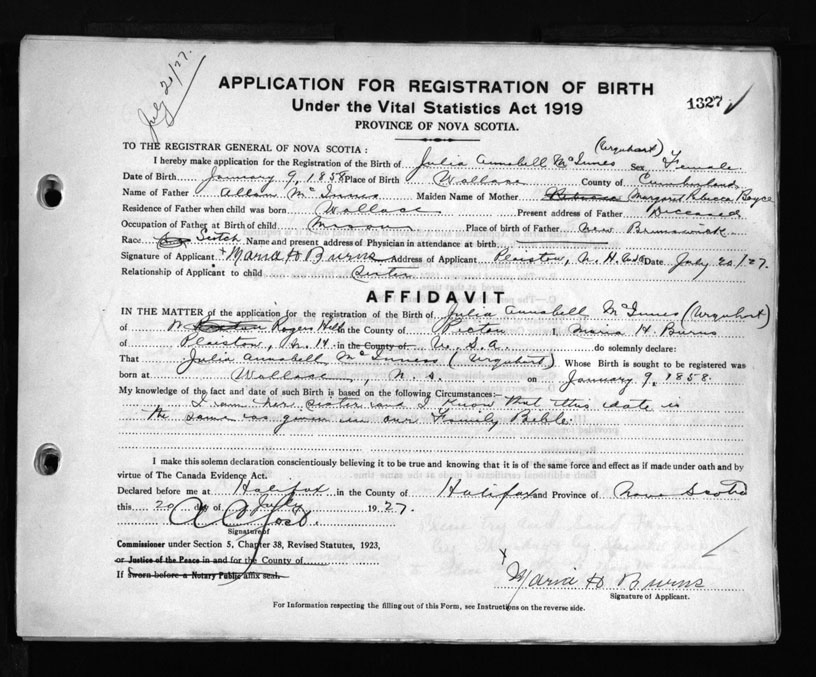 July 20/27.
APPLICATION FOR REGISTRATION OF BIRTH
Under the Vital Statistics Act 1919
1327
PROVINCE OF NOVA SCOTIA.
TO THE REGISTRAR GENERAL OF NOVA SCOTIA : (Urquhart)
I hereby make application for the Registration of the Birth of Julia Annabell McInnes Sex Female
Date of Birth January 9, 1858 Place of Birth Wallace County of Cumberland
Name of Father Allan McInnes Maiden Name of Mother Margaret Rebecca Boyce
Residence of Father when child was born Wallace Present address of Father Deceased
Occupation of Father at Birth of child Mason Place of birth of Father New Brunswick
Race Scotch Name and present address of Physician in attendance at birth
Signature of Applicant x Maria H Burns Address of Applicant Plaistow, N. H. Date July 20/27.
Relationship of Applicant to child Sister
AFFIDAVIT
IN THE MATTER of the application for the registration of the Birth of Julia Annabell McInnes (Urquhart)
of Rogers Hill in the County of Pictou I, Maria H. Burns
of Plaistow, N. H in the County of U. S. A. do solemnly declare:
That Julia Annabell McInness (Urquhart) Whose Birth is sought to be registered was
born at Wallace, N. S. on January 9, 1858.
My knowledge of the fact and date of such Birth is based on the following Circumstances:—
I am her sister and I know that this date is
the same as given in our Family Bible.
I make this solemn declaration conscientiously believing it to be true and knowing that it is of the same force and effect as if made under oath and by
virtue of The Canada Evidence Act.
Declared before me at Halifax in the County of Halifax and Province of Nova Scotia
this 20 day of July 1927.
Signature of
Commissioner under Section 5, Chapter 38, Revised Statutes, 1923,
or Justice of the Peace in and for the County of
If Sworn before a Notary Public affix seal.
x Maria H Burns
Signature of Applicant.
For Information respecting the filling out of this Form, see Instructions on the reverse side.